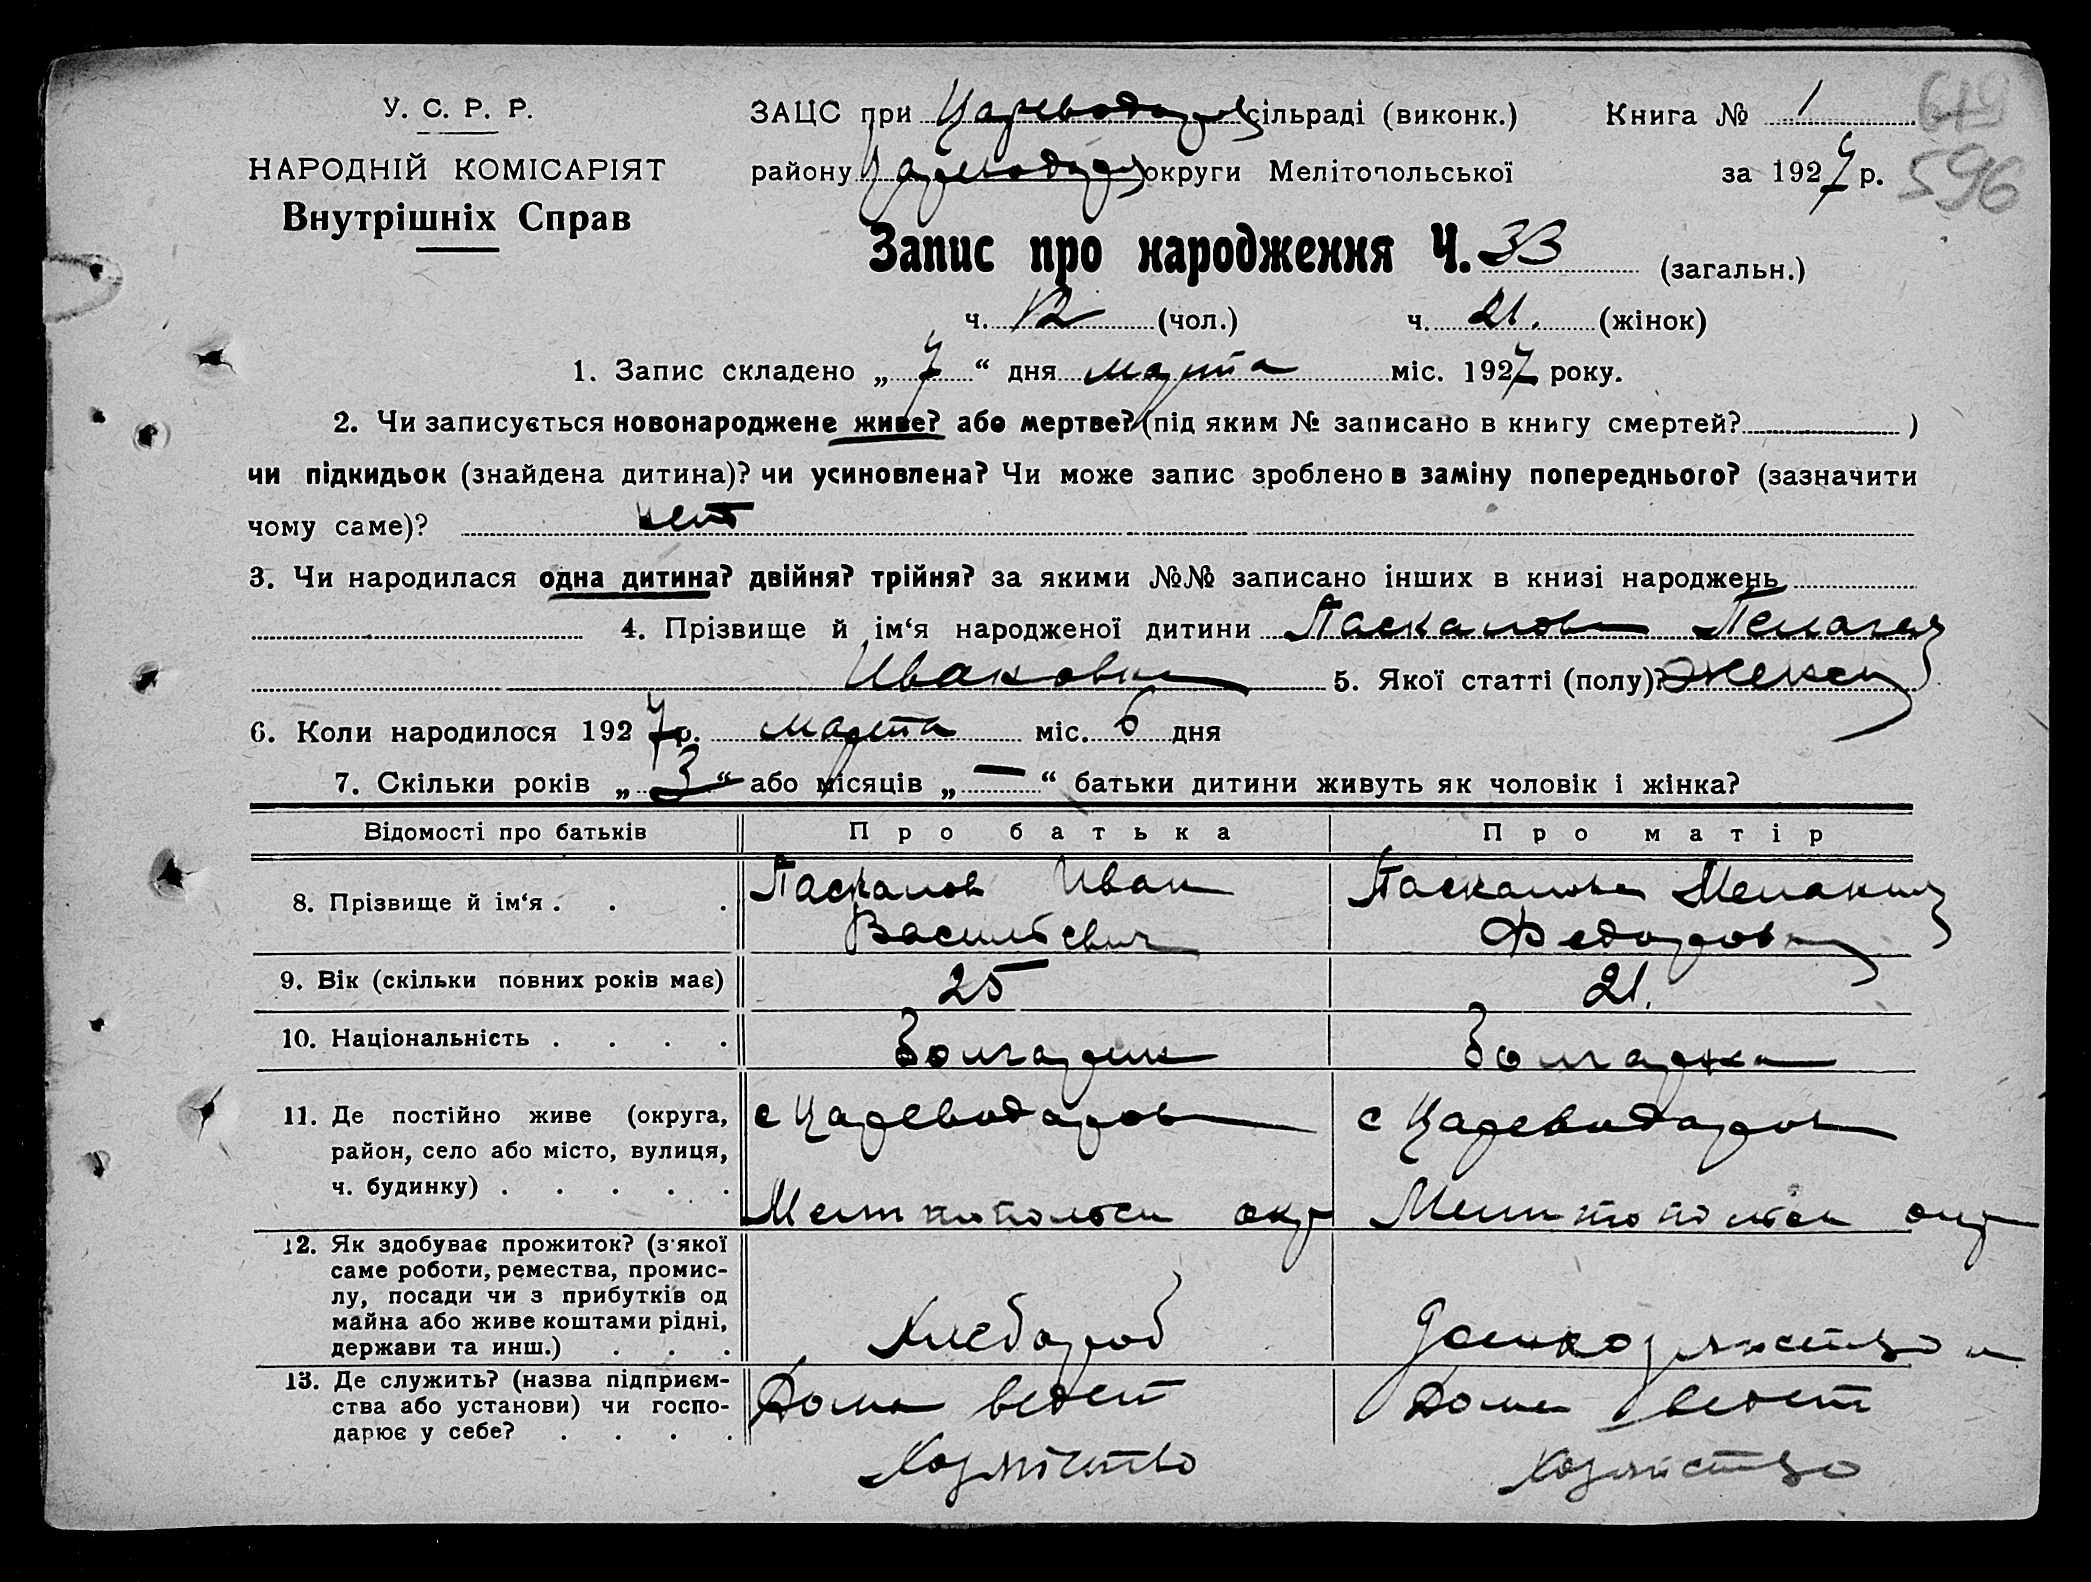 У. С. Р. Р.
НАРОДНІЙ КОМІСАРІЯТ
Внутрішніх Справ
ЗАЦС при Цареводар сільраді (виконк.) Книга № 1
району Цареводар округи Мелітопольської за 1927 р.
619
596
Запис про народження Ч. 33 (загальн.)
ч. 12 (чол.) ч. 21. (жінок)
1. Запис складено „ 7 “ дня марта міс. 1927 року.
2. Чи записується новонароджене живе? або мертве? (під яким № записано в книгу смертей? )
чи підкидьок (знайдена дитина)? чи усиновлена? Чи може запис зроблено в заміну попереднього? (зазначити
чому саме)? нет
3. Чи народилася одна дитина? двійня? трійня? за якими №№ записано інших в книзі народжень
4. Прізвище й ім‘я народженої дитини Паскалова Пелагея
Ивановна 5. Якої статті (полу)? женск
6. Коли народилося 1927 р. марта міс. 6 дня
7. Скільки років „ 3 “ або місяців „ — “ батьки дитини живуть як чоловік і жінка?
Відомості про батьків Про батька Про матір
8. Прізвище й ім‘я . . . Паскалов Иван Паскалова Мелания
Васильевич Федоровна
9. Вік (скільки повних років має) 25 21.
10. Національність . . . . болгарин болгарка
11. Де постійно живе (округа, с Цареводаровка с Цареводаровка
район, село або місто, вулиця,
ч. будинку) . . . . . Мелитопольск окр Мелитопольск окр
12. Як здобуває прожиток? (з якої
саме роботи, ремества, промис-
лу, посади чи з прибутків од
майна або живе коштами рідні,
держави та инш.) . . . Хлебороб Домхозяйство
13. Де служить? (назва підприєм- Дома ведет Дома ведет
ства або установи) чи госпо-
дарює у себе? . . . .
Хозяйство Хозяйство